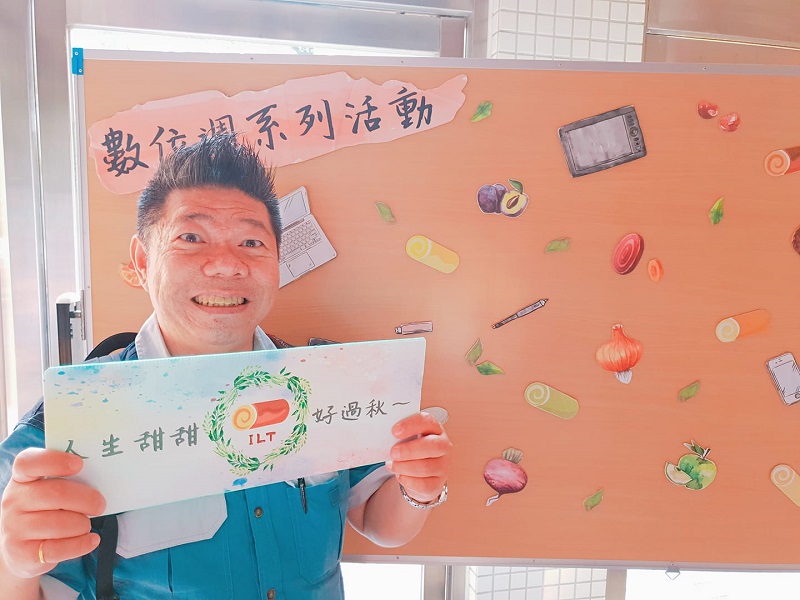 數位週系列活動
人生甜甜
ILT
好過秋~